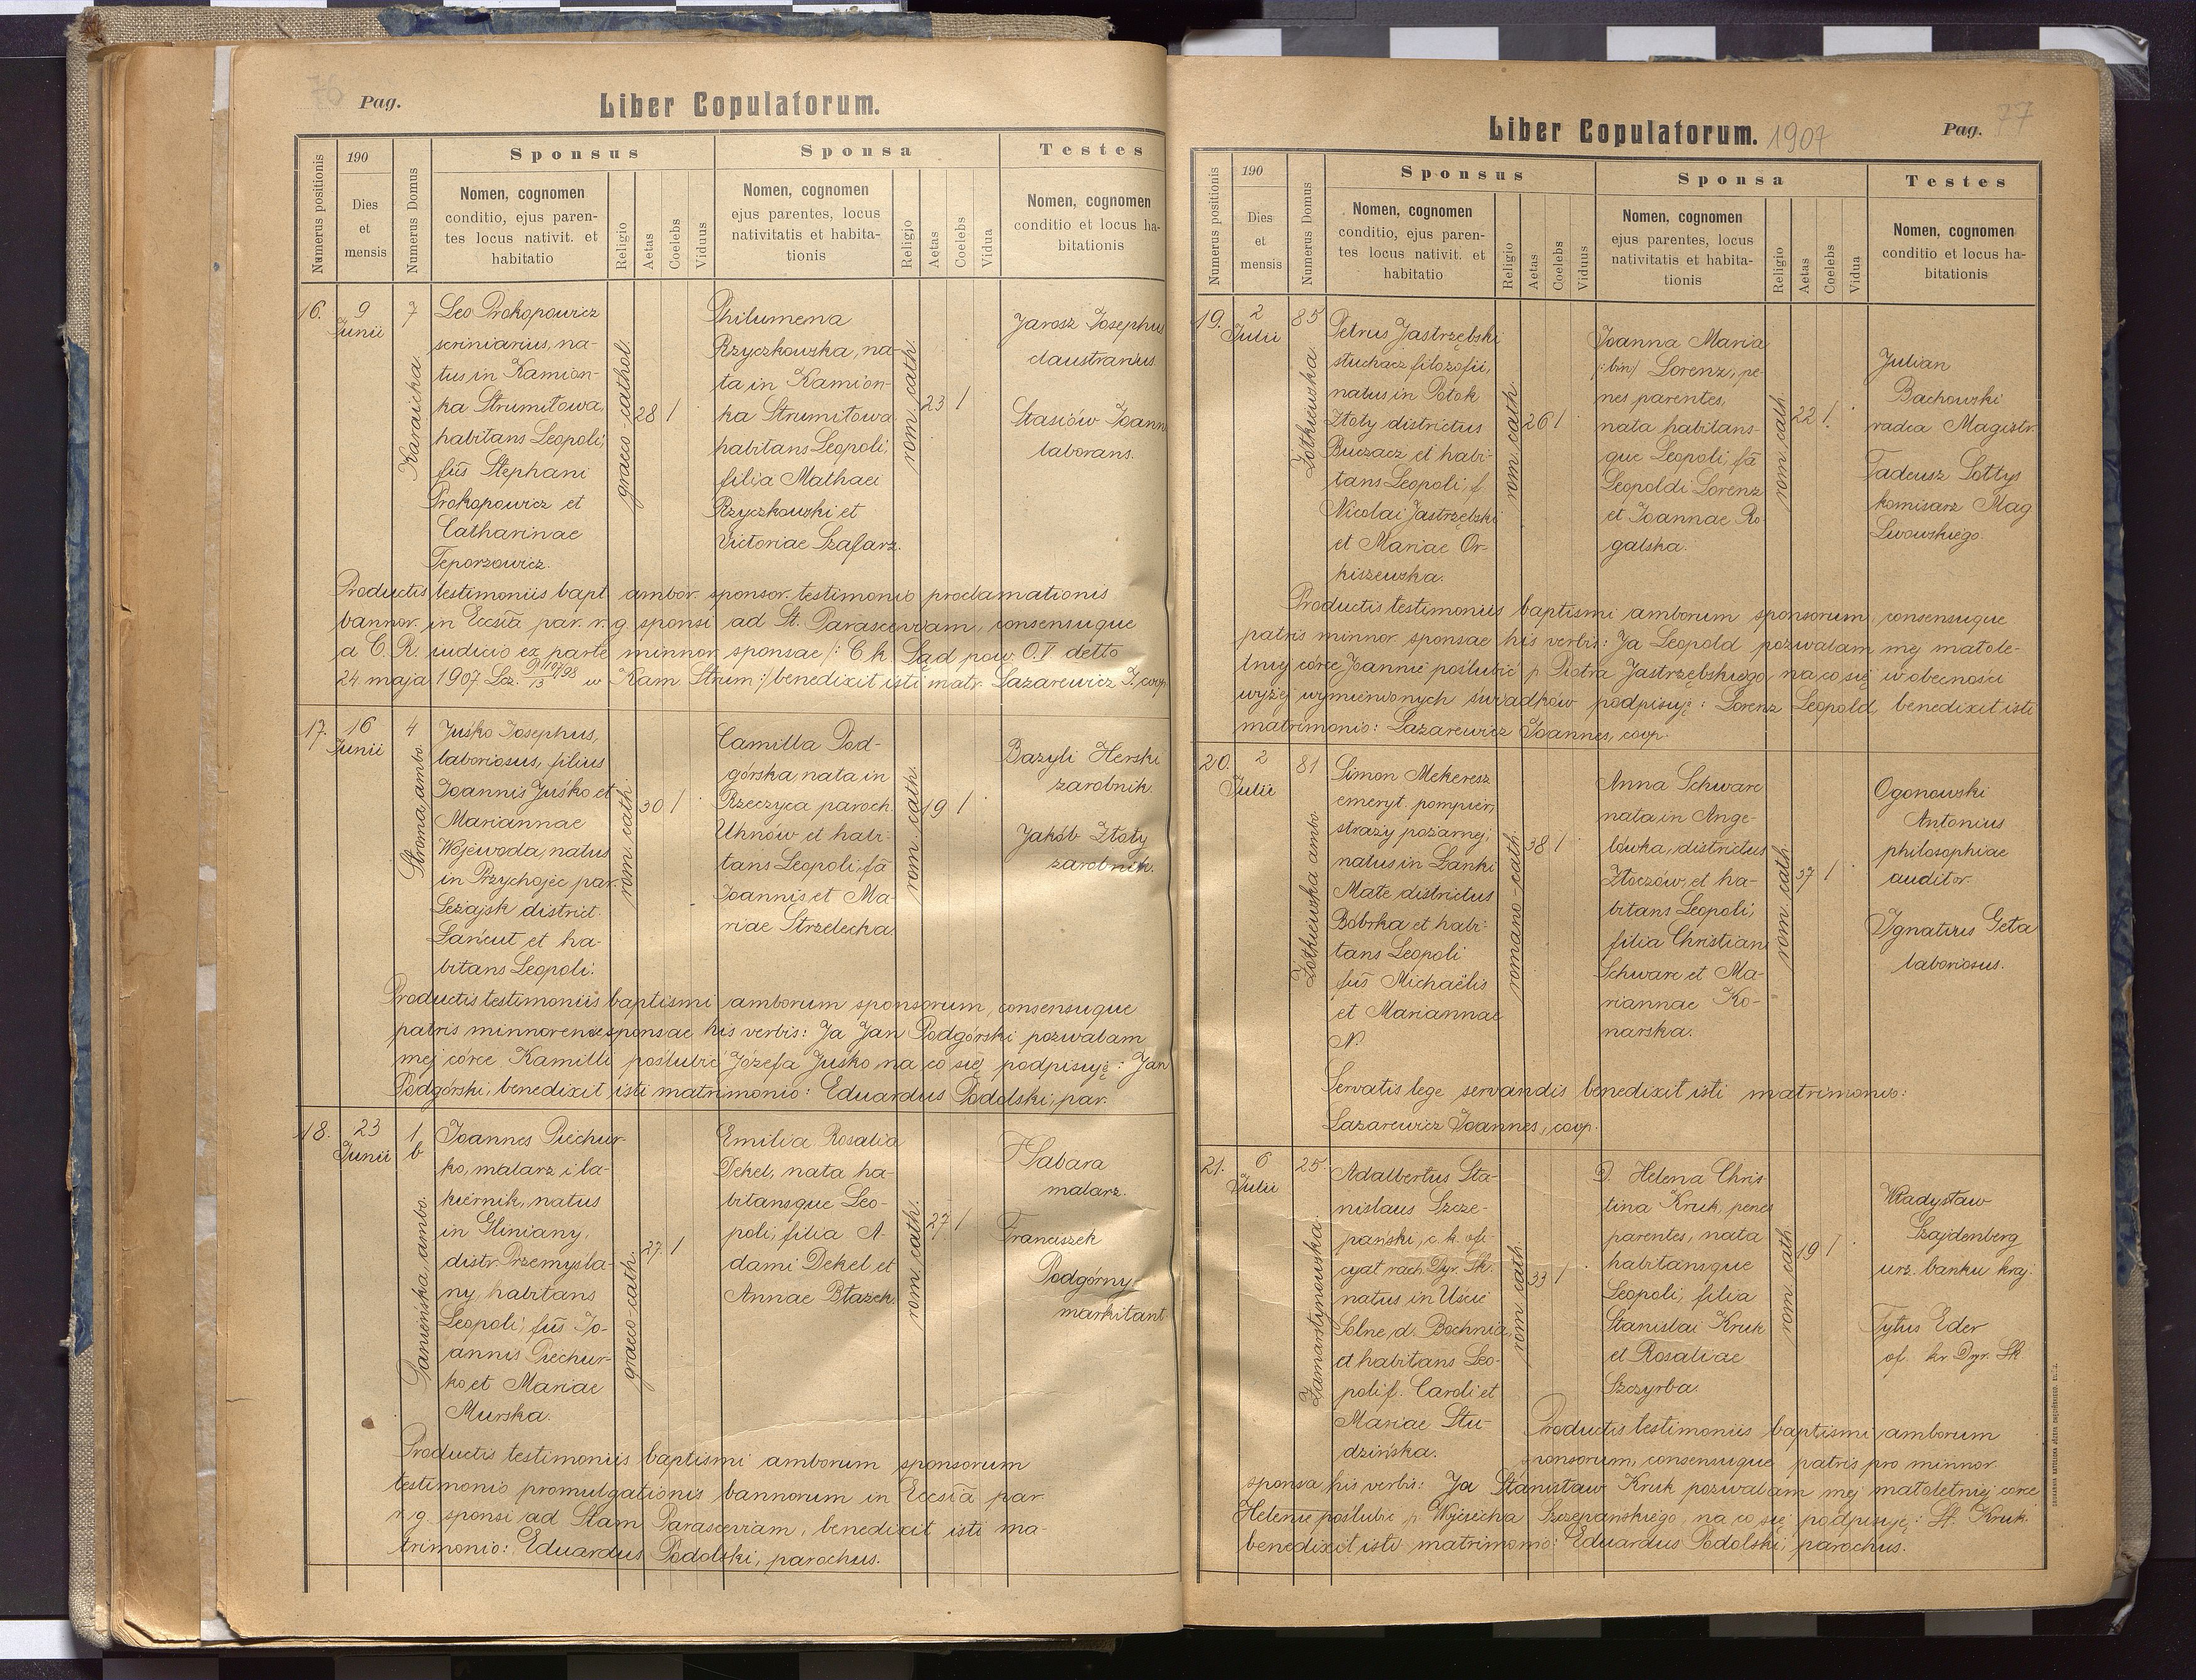 76 Pag.
Liber Copulatorum.
Numerus positionis
190
Dies et mensis
Numerus Domus
Sponsus
Nomen, cognomen
conditio, ejus paren-
tes locus nativit. et
habitatio
Religio
Aetas
Coelebs
Viduus
Sponsa
Nomen, cognomen
ejus parentes, locus
nativitatis et habita-
tionis
Religio
Aetas
Coelebs
Vidua
Testes
Nomen, cognomen
conditio et locus ha-
bitationis
16.
9
Junii
7
Karaicka.
Leo Prokopowicz
scriniarius, na-
tus in Kamion-
ka Strumiłowa,
habitans Leopoli,
fiūs Stephani
Prokopowicz et
Catharinae
Teporzowicz.
graeco-cathol.
28
1
Philumena
Rzyczkowska, na-
ta in Kamion-
ka Strumiłowa
habitans Leopoli,
filia Mathaei
Rzyczkowski et
Victoriae Szafarz.
rom. cath.
23
1
Jarosz Josephus
claustrarius.
Stasiów Joann
laborans.
Productis testimoniis bapt. ambor. sponsor. testimonio proclamationis
bannor. in Eccsiā par. r. g. sponsi ad St. Parascevam, consensuque
a C. R. iudicio ex parte minnor sponsae /: C k Sąd pow. O. V detto
24. maja 1907 Lcz. w Kam. Strum:/ benedixit isti matr. Lazarewicz J. coop.
17.
16
Junii
4
Stroma, ambo.
Juśko Josephus,
laboriosus, filius
Joannis Juśko et
Mariannae
Wojewoda, natus
in Przychojec par.
Leżajsk district.
Łańcut et ha-
bitans Leopoli.
rom. cath.
30
1
Camilla Pod-
górska, nata in
Rzeczyca paroch.
Uhnów et habi-
tans Leopoli, fā
Joannis et Ma-
riae Strzelecka.
rom. cath.
19
1
Bazyli Herski
zarobnik.
Jakób Złoty
zarobnik.
Productis testimoniis baptismi amborum sponsorum, consensuque
patris minnorene sponsae his verbis: Ja Jan Podgórski pozwalam
mej córce Kamilli poślubić Józefa Juśko na co się podpisuję: Jan
Podgórski, benedixit isti matrimonio: Eduardus Podolski, par.
18.
23
Junii
1
b
Panieńska, ambo.
Joannes Piechur-
ko, malarz i la-
kiernik, natus
in Gliniany,
distr. Przemyśla-
ny, habitans
Leopoli, fiūs Jo-
annis Piechur-
ko et Mariae
Murska.
graeco-cath.
27
1
Emilia Rosalia
Dekel, nata ha-
bitansque Leo-
poli, filia A-
dami Dekel et
Annae Błazek.
rom. cath.
27
1
Sabara
malarz.
Franciszek
Podgórny
markitant
Productis testimoniis baptismi amborum sponsorum
testimonio promulgationis bannorum in Eccsiā par.
r. g. sponsi ad Stam Parasceviam, benedixit isti ma-
trimonio: Eduardus Podolski, parochus.
Liber Copulatorum. 1907
Pag. 77
Numerus positionis
190
Dies et mensis
Numerus Domus
Sponsus
Nomen, cognomen
conditio, ejus paren-
tes locus nativit. et
habitatio
Religio
Aetas
Coelebs
Viduus
Sponsa
Nomen, cognomen
ejus parentes, locus
nativitatis et habita-
tionis
Religio
Aetas
Coelebs
Vidua
Testes
Nomen, cognomen
conditio et locus ha-
bitationis
19.
2
Julii
85
Żółkiewska.
Petrus Jastrzębski
słuchacz filozofii,
natus in Potok
Złoty districtus
Buczacz et habi-
tans Leopoli, f.
Nicolai Jastrzębski
et Mariae Or-
kiszewska.
rom. cath.
26
1
Joanna Maria
/:bin/ Lorenz, pe-
nes parentes,
nata habitans-
que Leopoli, fā
Leopoldi Lorenz
et Joannae Ro-
galska.
rom. cath.
22
1
Julian
Bachowski
radca Magistr.
Tadeusz Sołtys
komisarz Mag
Lwowskiego.
Productis testimoniis baptismi amborum sponsorum, consensuque
patris minnor. sponsae his verbis: Ja Leopold pozwalam mej małole-
tniej córce Joannie poślubić p. Piotra Jastrzębskiego, na co się w obecności
wyżej wymienionych świadków podpisuję: Lorenz Leopold, benedixit isti
matrimonio: Lazarewicz Joannes, coop.
20.
2
Julii
81
Żółkiewska ambo.
Simon Mekeresz
emeryt. pompier,
straży pożarnej,
natus in Łanki
Małe districtus
Bóbrka et habi-
tans Leopoli
fiūs Michaëlis
et Mariannae
N.
romano-cath.
38
1
Anna Schwarc
nata in Ange-
lówka, districtus
Złoczów, et ha-
bitans Leopoli,
filia Christiani
Schwarc et Ma-
riannae Ko-
narska.
rom. cath.
37
1
Ogonowski
Antonius
philosophiae
auditor.
Ignatius Geta
laboriosus.
Servatis lege servandis benedixit isti matrimonio:
Lazarewicz Joannes, coop.
21.
6
Julii
25
Zamarstynowska.
Adalbertus Sta-
nislaus Szcze-
pański, c. k. ofi-
cyał rach. Dyr. Sk.
natus in Uście
Solne, d. Bochnia,
et habitans Leo-
poli f. Caroli et
Mariae Stu-
dzińska.
rom. cath.
33
1
D. Helena Chris-
tina Kruk, penes
parentes, nata
habitansque
Leopoli, filia
Stanislai Kruk
et Rosaliae
Szczyrba.
rom. cath.
19
1
Władysław
Szajdenberg
urz. banku kraj.
Tytus Eder
of. kr. Dyr. Sk
Productis testimoniis baptismi amborum
sponsorum, consensuque patris pro minnor.
sponsa his verbis: Ja Stanisław Kruk pozwalam mej małoletniej córce
Helenie poślubić p. Wojciecha Szczepańskiego, na co się podpisuję: St. Kruk
benedixit isti matrimonio: Eduardus Podolski, parochus.